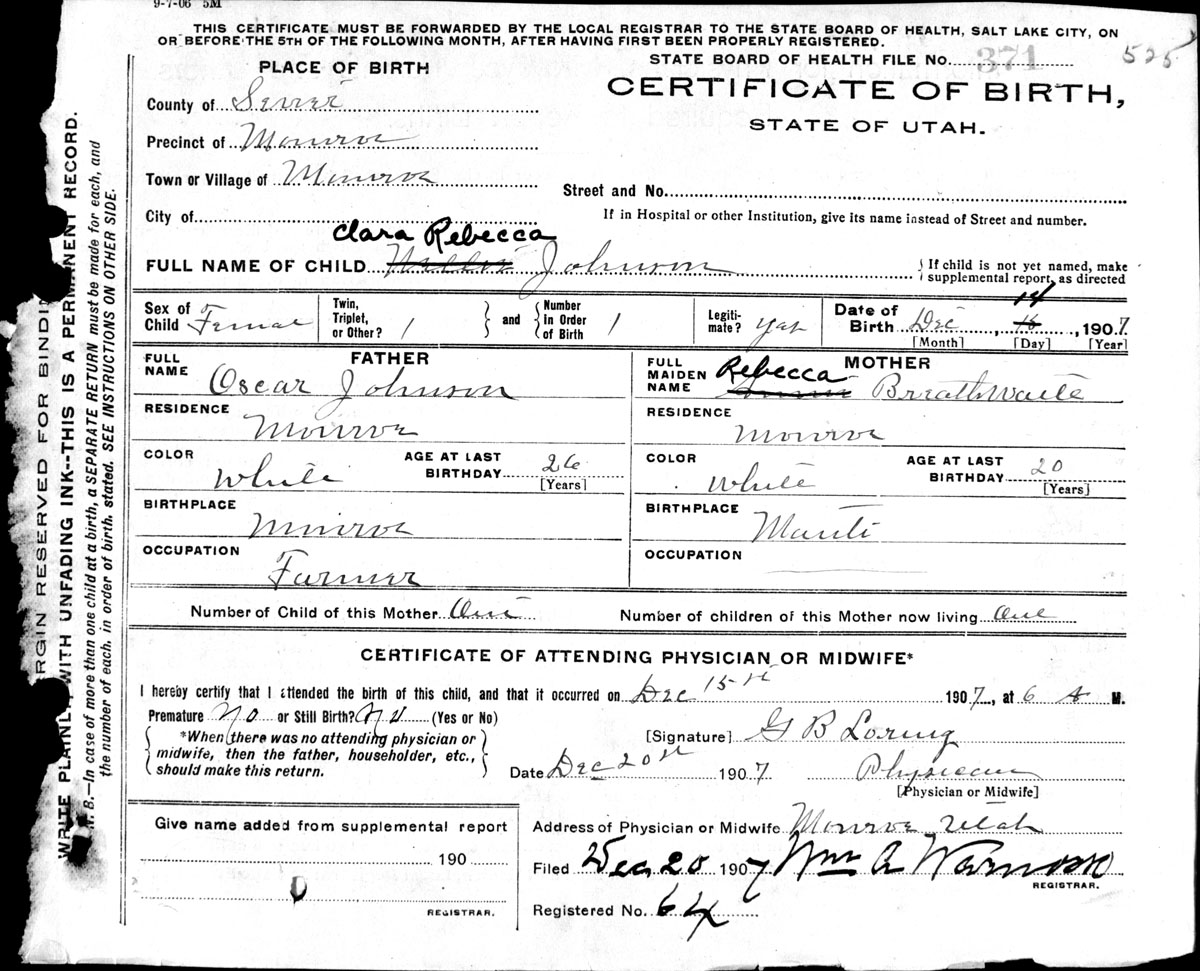 9-7-06 5M
THIS CERTIFICATE MUST BE FORWARDED BY THE LOCAL REGISTRAR TO THE STATE BOARD OF HEALTH, SALT LAKE CITY, ON
OR BEFORE THE 5TH OF THE FOLLOWING MONTH, AFTER HAVING FIRST BEEN PROPERLY REGISTERED.
STATE BOARD OF HEALTH FILE No. 371
525
PLACE OF BIRTH
CERTIFICATE OF BIRTH,
STATE OF UTAH.
County of Sevier
Precinct of Monroe
Town or Village of Monroe
Street and No.
City of
If in Hospital or other Institution, give its name instead of Street and number.
Clara Rebecca
FULL NAME OF CHILD Johnson
If child is not yet named, make supplemental report, as directed
Sex of Child Female
Twin, Triplet, or Other? 1
and
Number In Order of Birth 1
Legiti-mate? Yes
Date of Birth Dec 14 18, 1907
[Month] [Day] [Year]
FATHER
FULL NAME Oscar Johnson
RESIDENCE Monroe
COLOR White
AGE AT LAST BIRTHDAY 26
[Years]
BIRTHPLACE Monroe
OCCUPATION Farmer
MOTHER
FULL MAIDEN NAME Rebecca Annie Breathwaite
RESIDENCE Monroe
COLOR White
AGE AT LAST BIRTHDAY 20
[Years]
BIRTHPLACE Manti
OCCUPATION
Number of Child of this Mother One
Number of children of this Mother now living One
CERTIFICATE OF ATTENDING PHYSICIAN OR MIDWIFE*
I hereby certify that I attended the birth of this child, and that it occurred on Dec 15th 1907, at 6 A M.
Premature No or Still Birth? No (Yes or No)
*When there was no attending physician or
midwife, then the father, householder, etc.,
should make this return.
[Signature] G B Loring
Date Dec 20th 1907
Physician
[Physician or Midwife]
Give name added from supplemental report
190
REGISTRAR.
Address of Physician or Midwife Monroe Utah
Filed Dec 20 1907 Wm A Warnock
REGISTRAR.
Registered No. 64
MARGIN RESERVED FOR BINDIN
WRITE PLAINLY, WITH UNFADING INK--THIS IS A PERMANENT RECORD.
N. B.--In case of more than one child at a birth, a SEPARATE RETURN must be made for each, and
the number of each, in order of birth, stated. SEE INSTRUCTIONS ON OTHER SIDE.